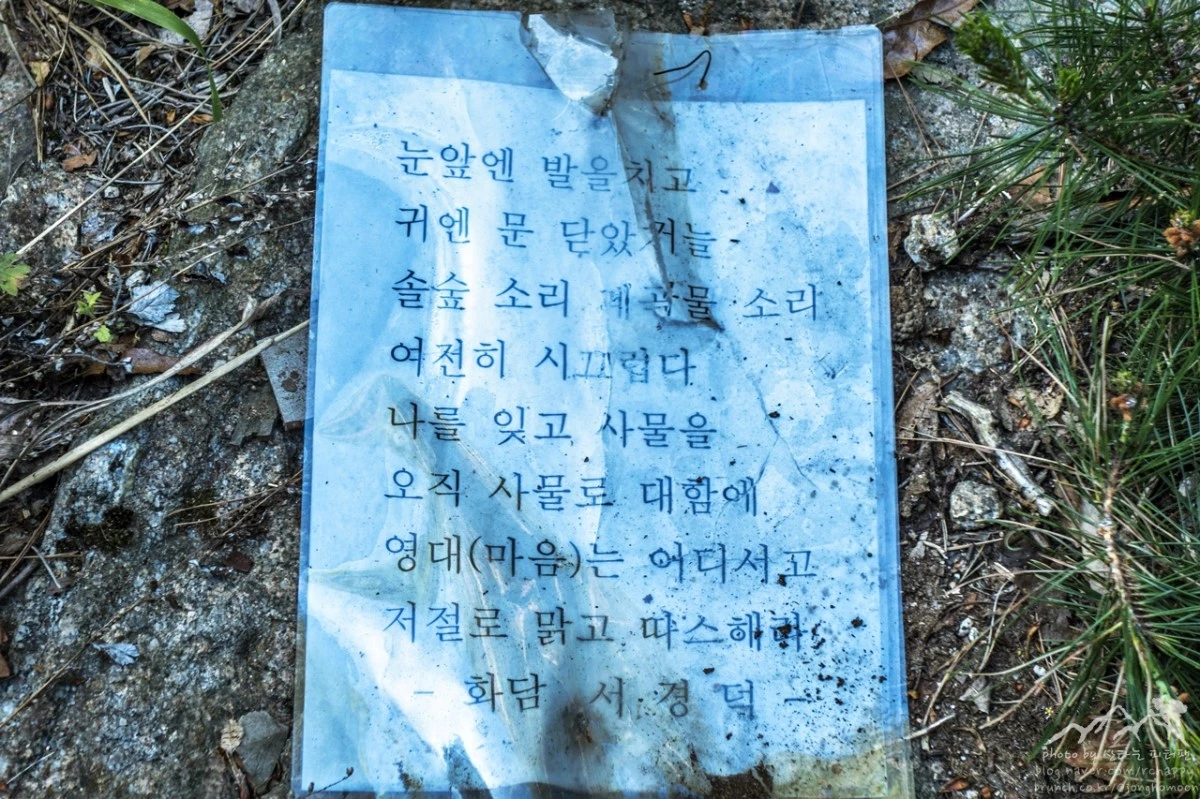 눈앞엔 발을치고
귀엔 문 닫았거늘
솔숲 소리 계곡물 소리
여전히 시끄럽다
나를 잊고 사물을
오직 사물로 대함에
영대(마음)는 어디서고
저절로 맑고 따스해라.
- 화담 서 경 덕 -
photo by 산타는 피터팬
blog.naver.com/rchappy
brunch.co.kr/@jonghamoo